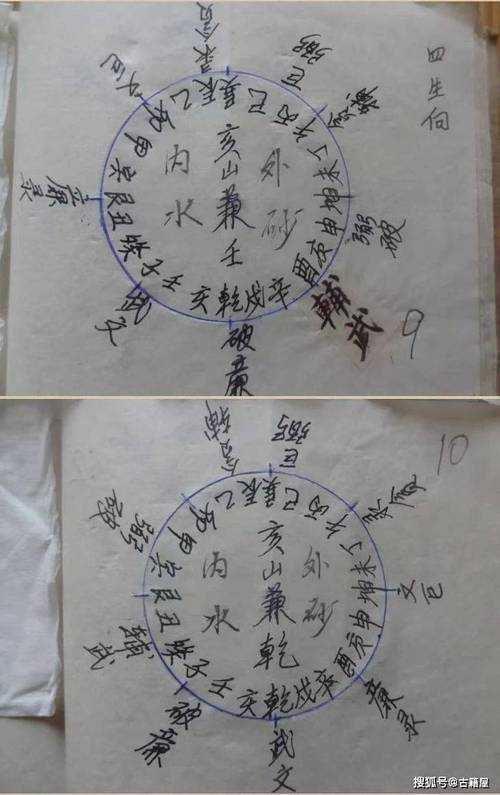 四生向
亥山兼壬
内水
外砂
乙辰巽巳丙午丁未坤申庚酉辛戌乾亥壬子癸丑艮寅甲卯
录贪
巨弼
贪輔
弼破
輔武
破廉
武文
廉录
9
10
亥山兼乾
内水
外砂
乙辰巽巳丙午丁未坤申庚酉辛戌乾亥壬子癸丑艮寅甲卯
贪輔
巨弼
录贪
文巨
廉录
武文
破廉
輔武
弼破
搜狐号@古籍屋